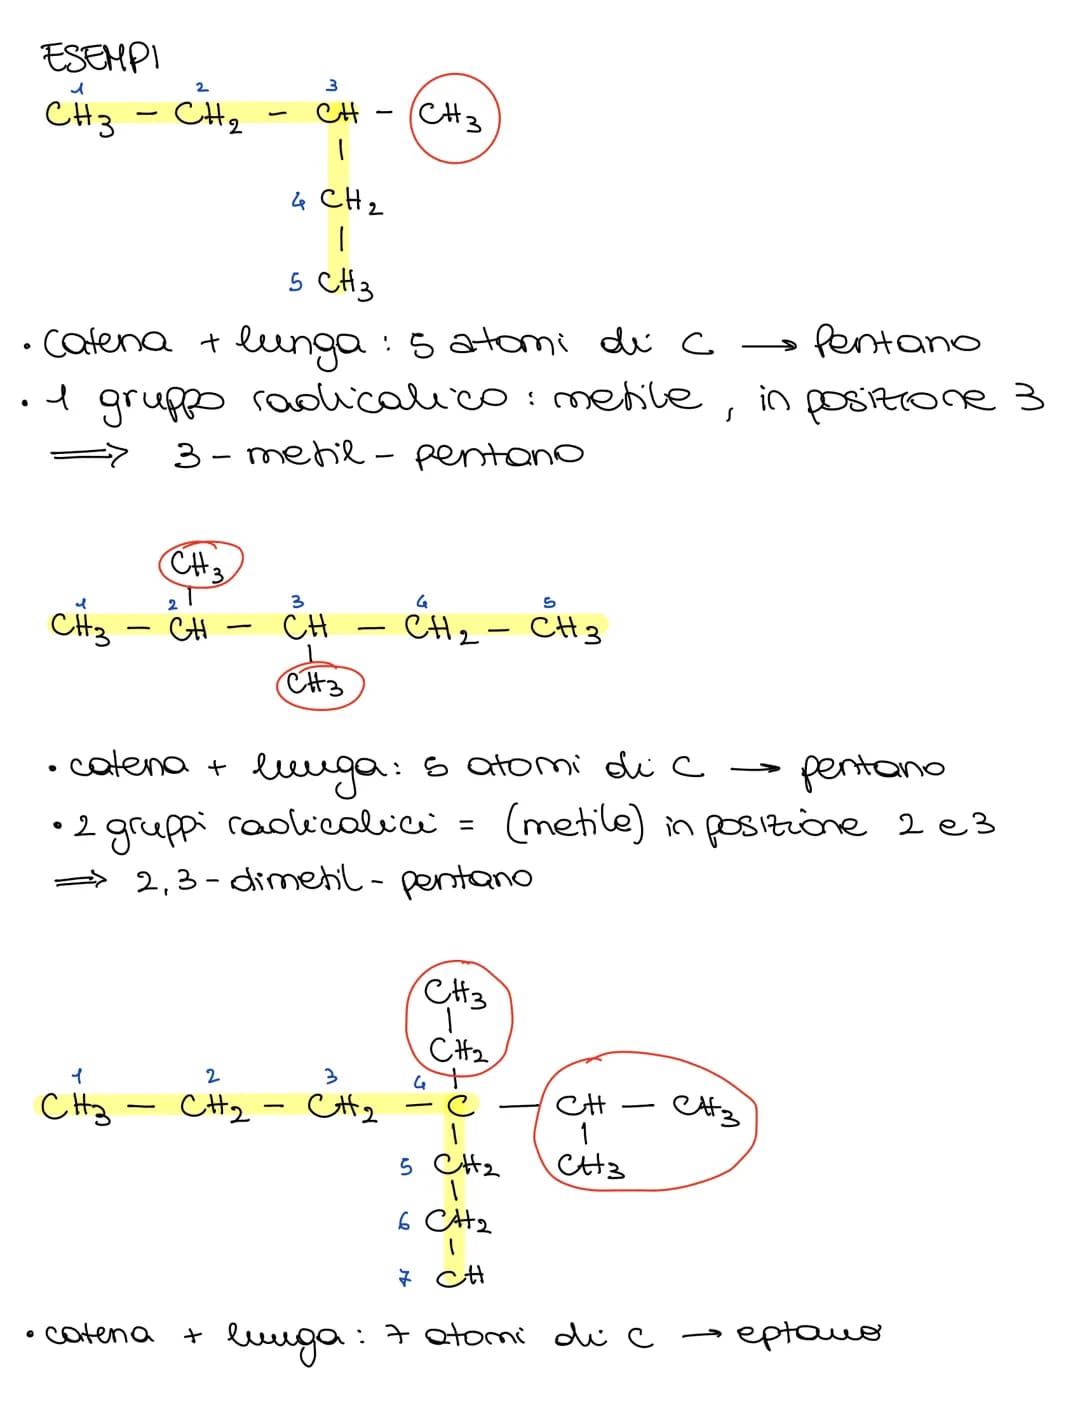 ESEMPI
1 2 3
CH3 - CH2 - CH - CH3
|
4 CH2
|
5 CH3
• catena + lunga : 5 atomi di C → Pentano
• 1 gruppo radicalico : metile, in posizione 3
⟹ 3 - metil - pentano
CH3
1 2 | 3 4 5
CH3 - CH - CH - CH2 - CH3
|
CH3
• catena + lunga: 5 atomi di C → pentano
• 2 gruppi radicalici = (metile) in posizione 2 e 3
⟹ 2,3 - dimetil - pentano
CH3
|
CH2
1 2 3 4 |
CH3 - CH2 - CH2 - C - CH - CH3
| |
5 CH2 CH3
|
6 CH2
|
7 CH
• catena + lunga : 7 atomi di C → eptano